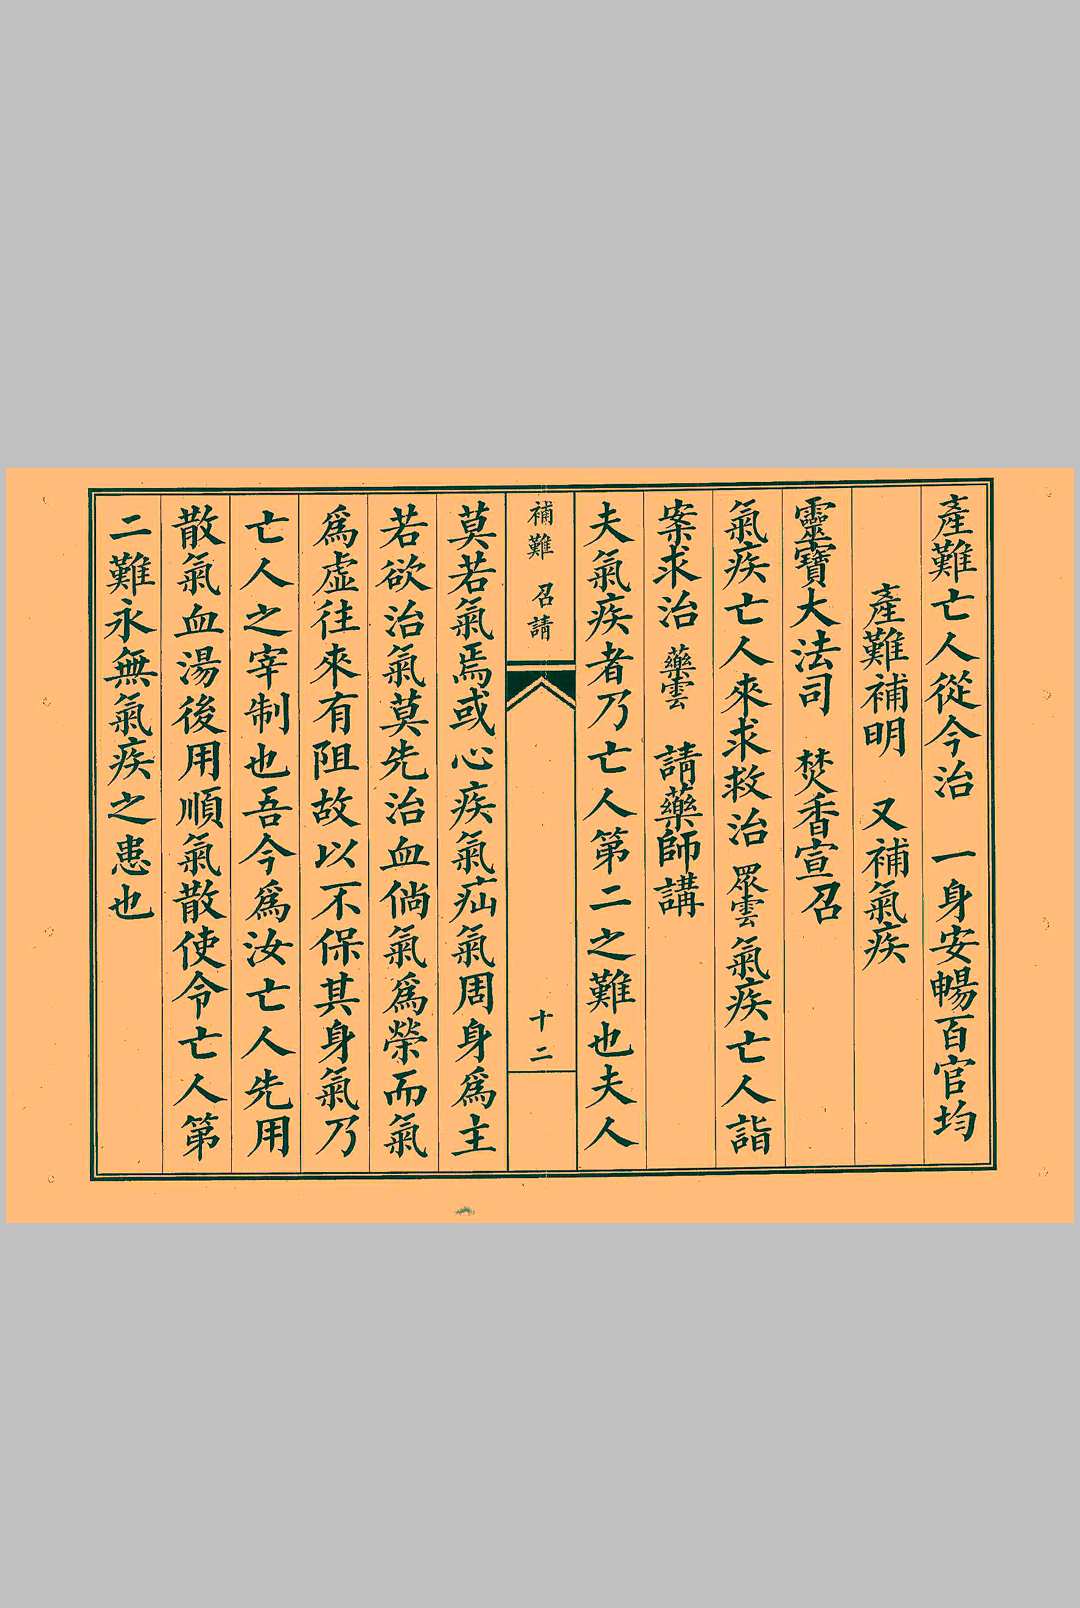 產難亡人從今治　一身安暢百官均
產難補明　又補氣疾
靈寶大法司　焚香宣召
氣疾亡人來求救治眾雲氣疾亡人詣
案求治　藥雲　請藥師講
夫氣疾者乃亡人第二之難也夫人
補難　召請
十二
莫若氣焉或心疾氣疝氣周身爲主
若欲治氣莫先治血倘氣爲榮而氣
爲虛往來有阻故以不保其身氣乃
亡人之宰制也吾今爲汝亡人先用
散氣血湯後用順氣散使令亡人第
二難永無氣疾之患也